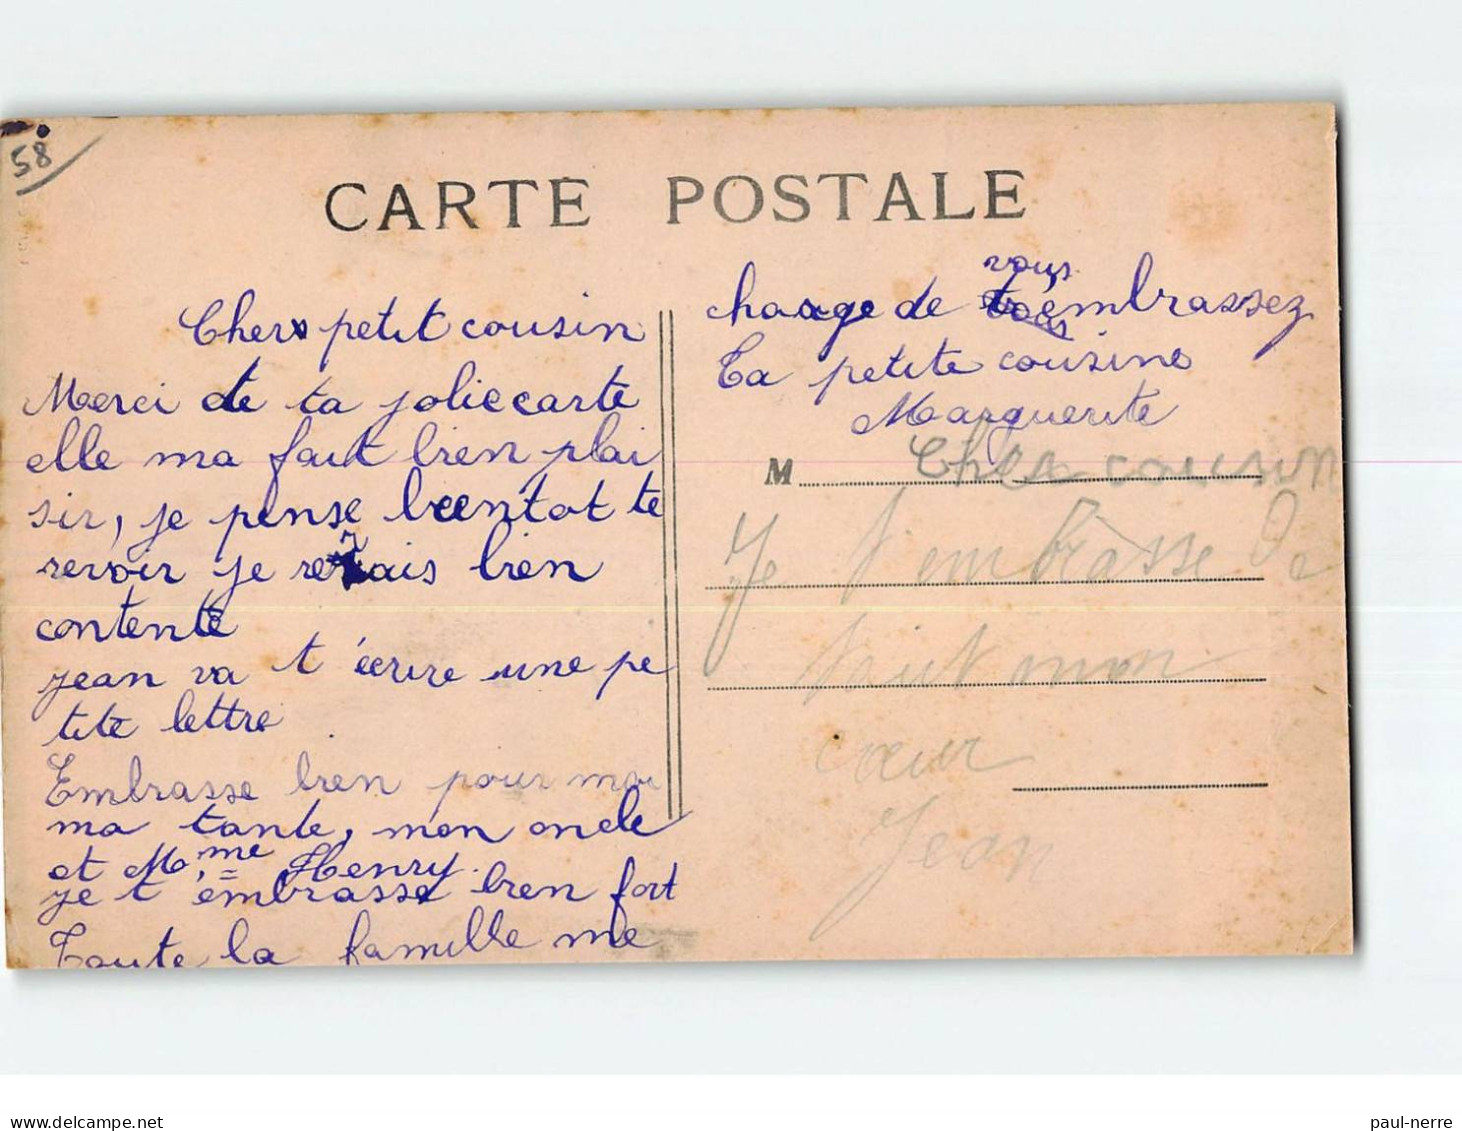 58
CARTE POSTALE
Cher petit cousin
Merci de ta jolie carte
elle ma fait bien plai
sir, je pense bientot te
revoir je serais bien
contente
jean va t'écrire une pe
tite lettre
Embrasse bien pour moi
ma tante, mon oncle
et Mme Henry.
je t'embrasse bien fort
Toute la famille me
charge de vous embrassez
Ta petite cousine
Marguerite
M Cher cousin
Je t'embrasse De
tout mon
cœur
Jean
paul-nerre